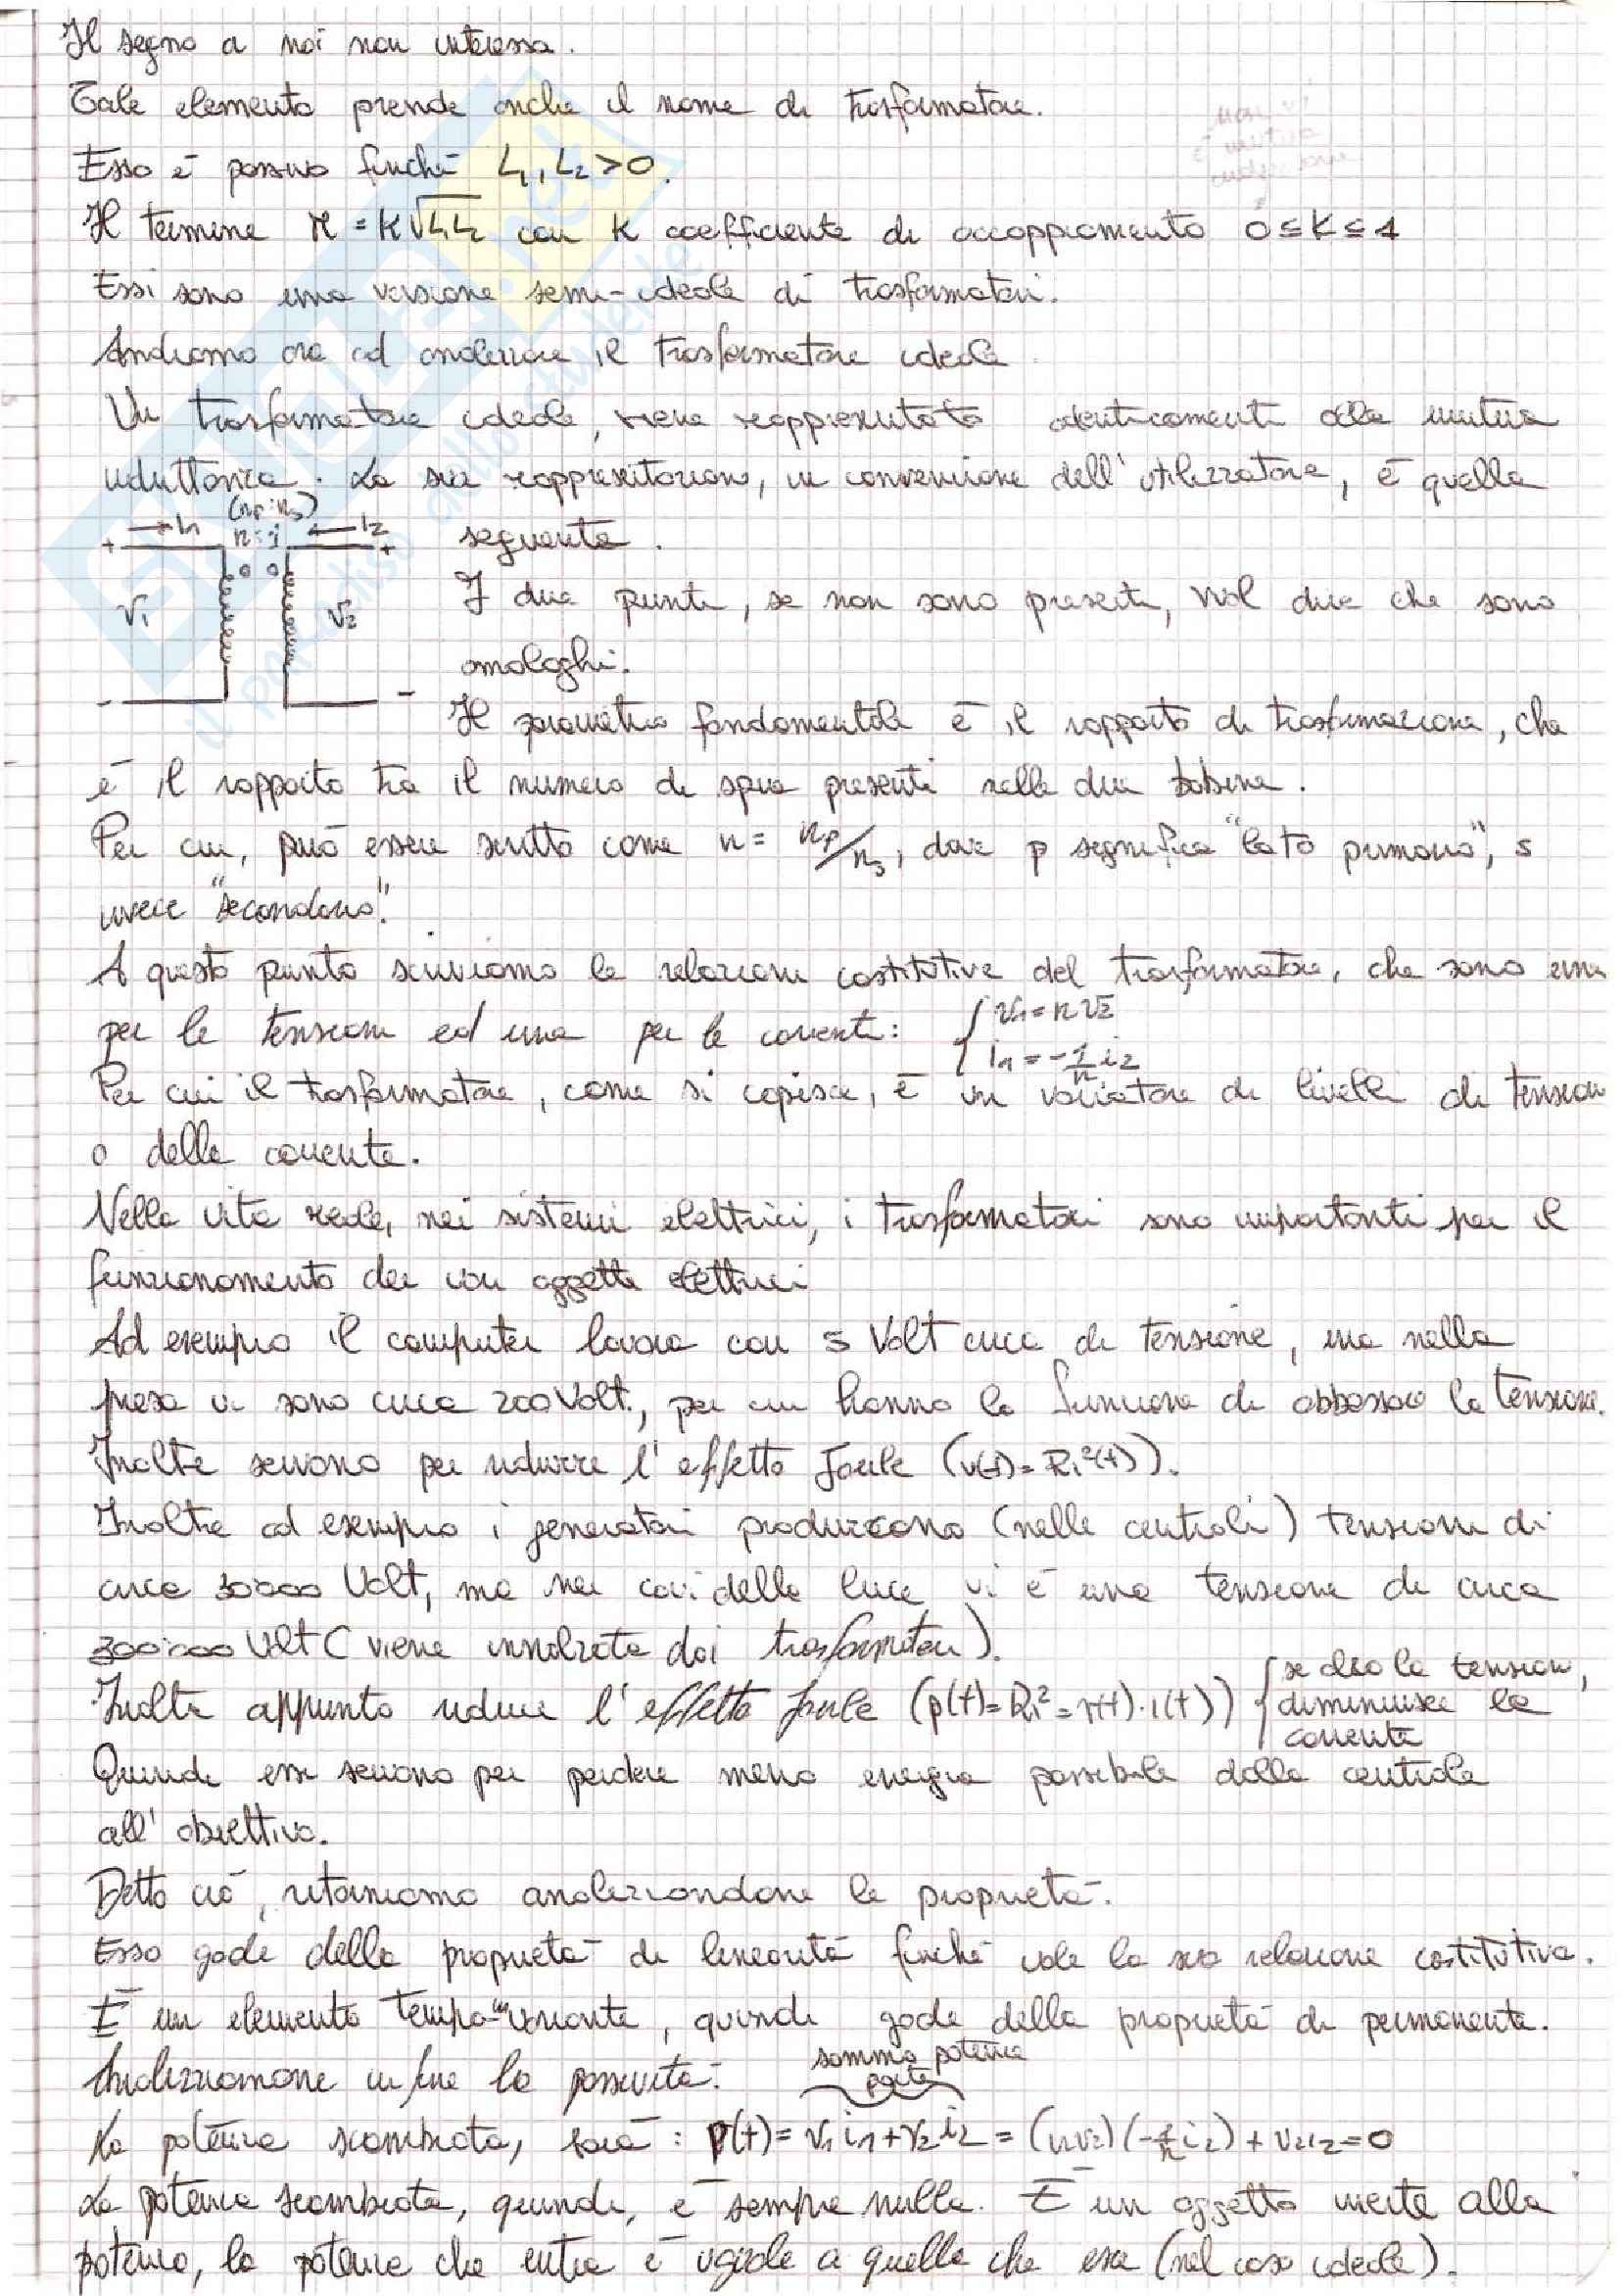 Il segno a noi non interessa.
Tale elemento prende anche il nome di trasformatore.
Non vi
è mutua
induzione
Esso è passivo finché L1, L2 > 0.
Il termine M = K√L1L2 con K coefficiente di accoppiamento 0 ≤ K ≤ 1
Essi sono una versione semi-ideale di trasformatori.
Andiamo ora ad analizzare il trasformatore ideale.
Un trasformatore ideale, viene rappresentato identicamente alla mutua
induttanza. La sua rappresentazione, in convenzione dell'utilizzatore, è quella
seguente.
(np:ns)
→ i1 n:1 ← i2
+ +
V1 V2
- -
I due punti, se non sono presenti, vuol dire che sono
omologhi.
Il parametro fondamentale è il rapporto di trasformazione, che
è il rapporto tra il numero di spire presenti nelle due bobine.
Per cui, può essere scritto come n = np/ns, dove p significa "lato primario", s
invece "secondario".
A questo punto scriviamo le relazioni costitutive del trasformatore, che sono una
per le tensioni ed una per le correnti: { v1 = n v2
i1 = -1/n i2
Per cui il trasformatore, come si capisce, è un variatore di livelli di tensioni
o delle corrente.
Nella vita reale, nei sistemi elettrici, i trasformatori sono importanti per il
funzionamento dei vari oggetti elettrici
Ad esempio il computer lavora con 5 Volt circa di tensione, ma nella
presa vi sono circa 200 Volt, per cui hanno la funzione di abbassare la tensione.
Inoltre servono per ridurre l'effetto Joule (v(t) = Ri²(t)).
Inoltre ad esempio i generatori producono (nelle centrali) tensioni di
circa 30'000 Volt, ma nei cavi della luce vi è una tensione di circa
300'000 Volt (viene innalzata dai trasformatori).
Inoltre appunto riduce l'effetto Joule (p(t) = Ri² = v(t)·i(t)) { se alzo la tensione,
diminuisce la
corrente
Quindi essi servono per perdere meno energia possibile dalla centrale
all'obiettivo.
Detto ciò, ritorniamo analizzandone le proprietà.
Esso gode della proprietà di linearità finché vale la sua relazione costitutiva.
È un elemento tempo-invariante, quindi gode della proprietà di permanente.
Analizziamone infine la passività.
somma potenze
porte
La potenza scambiata, sarà: p(t) = v1 i1 + v2 i2 = (n v2)(-1/n i2) + v2 i2 = 0
La potenza scambiata, quindi, è sempre nulla. È un oggetto inerte alla
potenza, la potenza che entra è uguale a quella che esce (nel caso ideale).